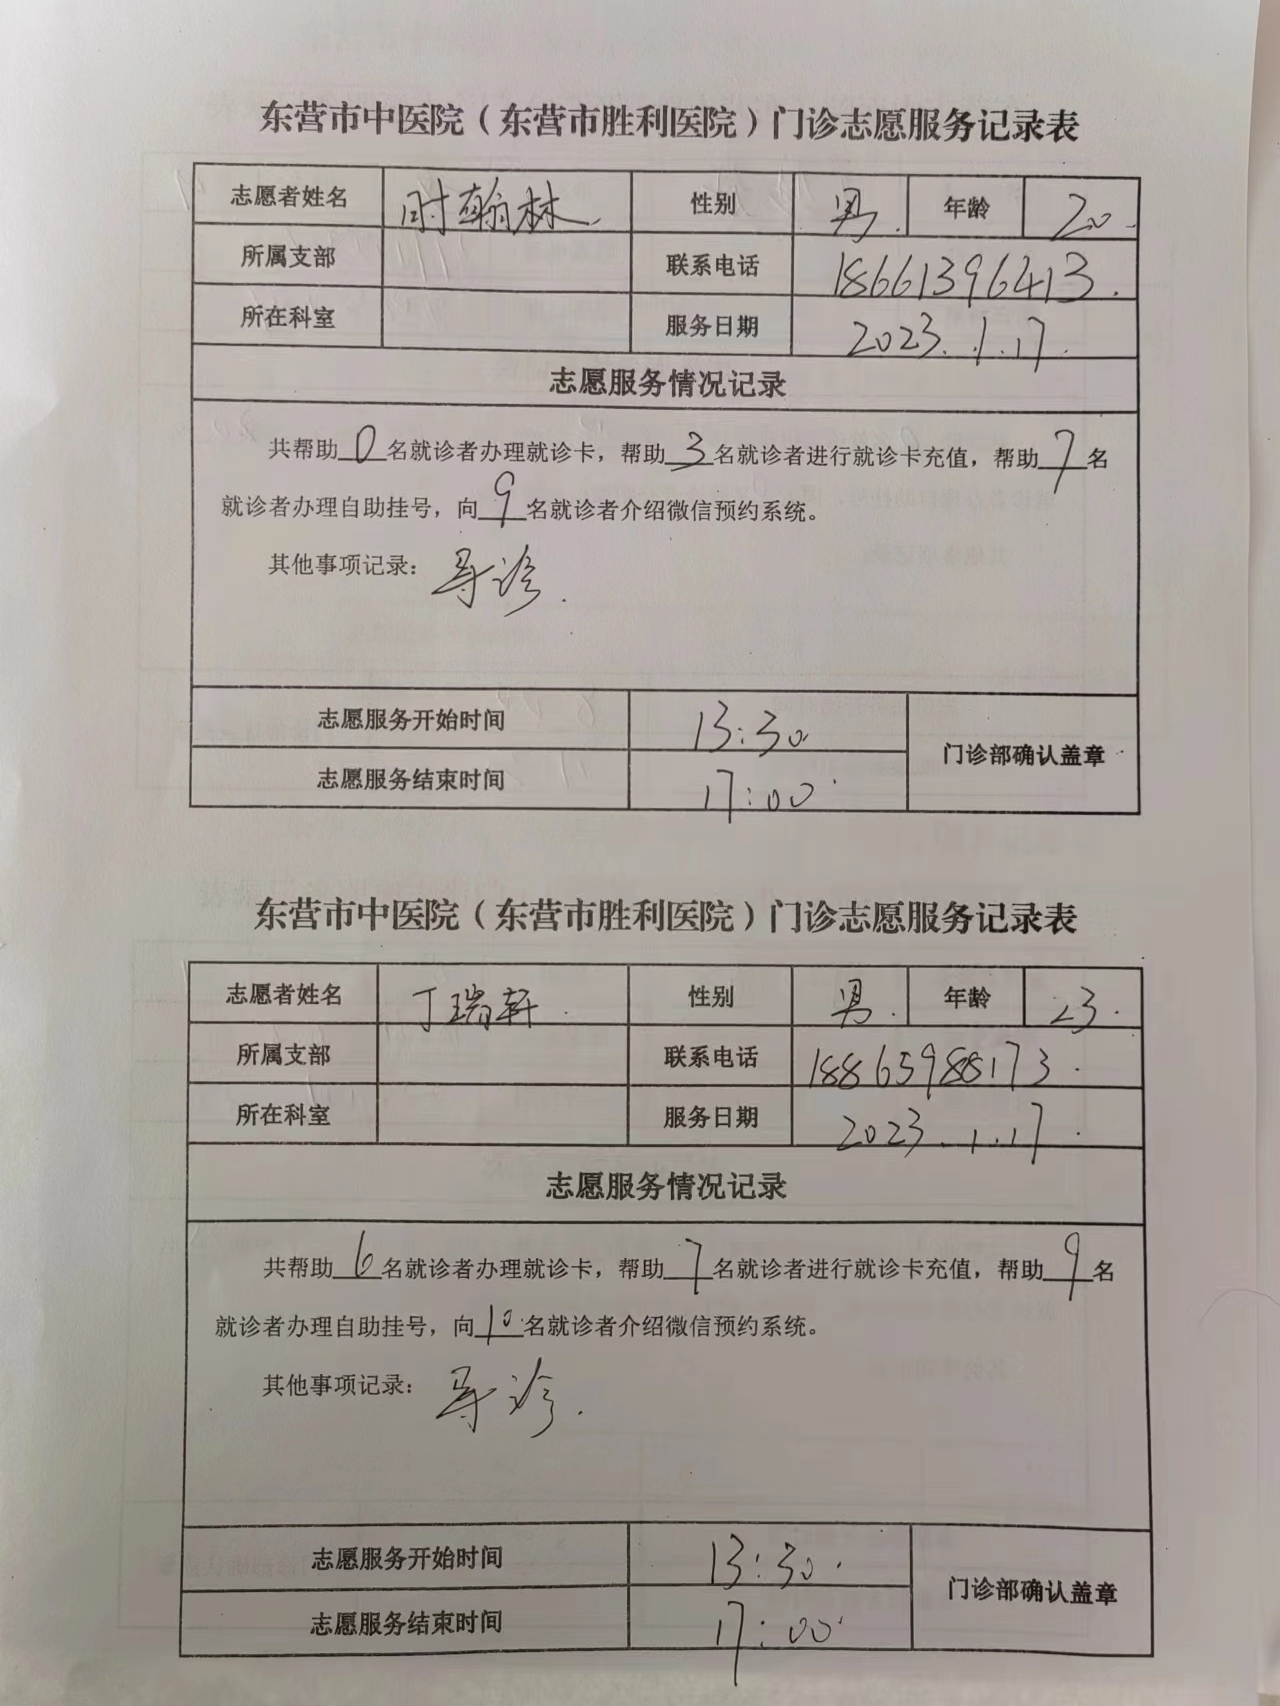 东营市中医院（东营市胜利医院）门诊志愿服务记录表
志愿者姓名 时翰林 性别 男 年龄 20
所属支部 联系电话 18661396413
所在科室 服务日期 2023.1.17
志愿服务情况记录
共帮助0名就诊者办理就诊卡，帮助3名就诊者进行就诊卡充值，帮助7名
就诊者办理自助挂号，向9名就诊者介绍微信预约系统。
其他事项记录：导诊
志愿服务开始时间 13:30
门诊部确认盖章
志愿服务结束时间 17:00
东营市中医院（东营市胜利医院）门诊志愿服务记录表
志愿者姓名 丁瑞轩 性别 男 年龄 23
所属支部 联系电话 18865988173
所在科室 服务日期 2023.1.17
志愿服务情况记录
共帮助6名就诊者办理就诊卡，帮助7名就诊者进行就诊卡充值，帮助9名
就诊者办理自助挂号，向10名就诊者介绍微信预约系统。
其他事项记录：导诊
志愿服务开始时间 13:30
门诊部确认盖章
志愿服务结束时间 17:00